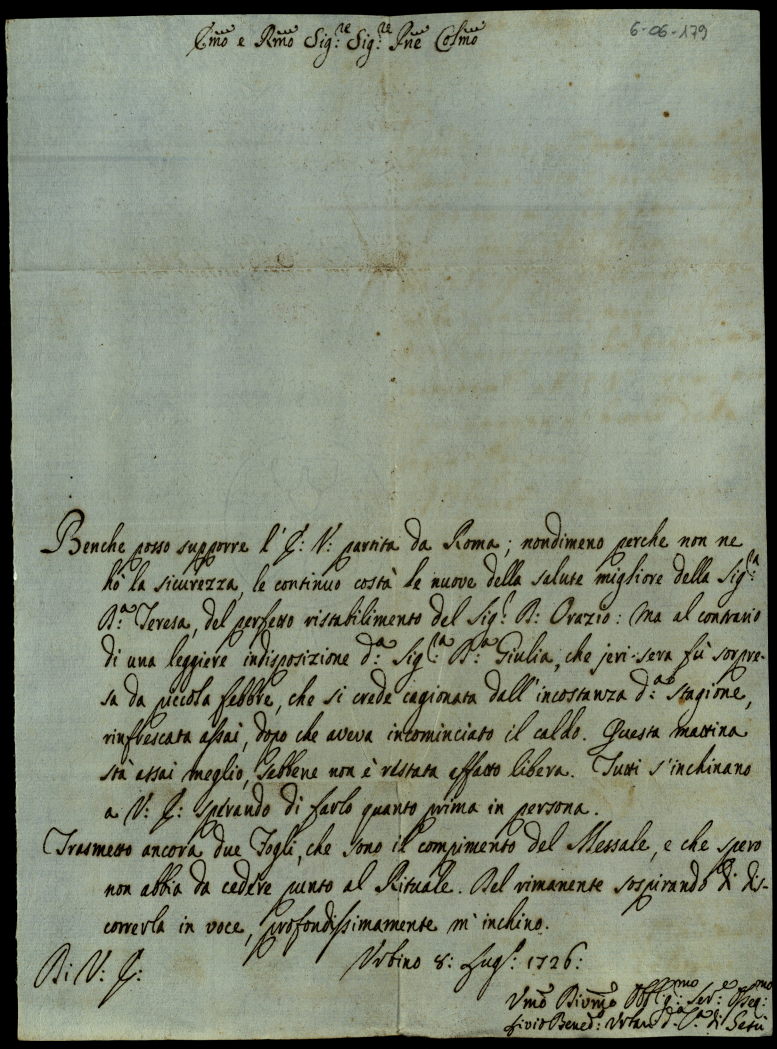 6-06-179
Ill̃mo e Rm̃o Sig:re Sig:re Pne Colm̃o
Benche posso supporre l' E: V: partita da Roma; nondimeno perche non ne
hò la sicurezza, le continuo costà le nuove della salute migliore della Sig:ra
D:a Teresa, del perfetto ristabilimento del Sig:r D: Orazio: Ma al contrario
di una leggiere indisposizione d:a Sig:ra D:a Giulia, che jeri-sera fù sorpre-
sa da piccola febbre, che si crede cagionata dall'incostanza d:a stagione,
rinfrescata assai, dopo che aveva incominciato il caldo. Questa mattina
stà assai meglio, sebbene non è restata affatto libera. Tutti s'inchinano
a V: E: sperando di farlo quanto prima in persona.
Trasmetto ancora due Fogli, che sono il compimento del Messale, e che spero
non abbia da cedere punto al Rituale. Del rimanente sospirando di dis-
correrla in voce, profondissimamente m'inchino.
Di V: E:
Urbino 8: Lug:o 1726:
Um̃o Divm̃o Obblig:mo Ser:e Osseq:mo
Livio Bened: